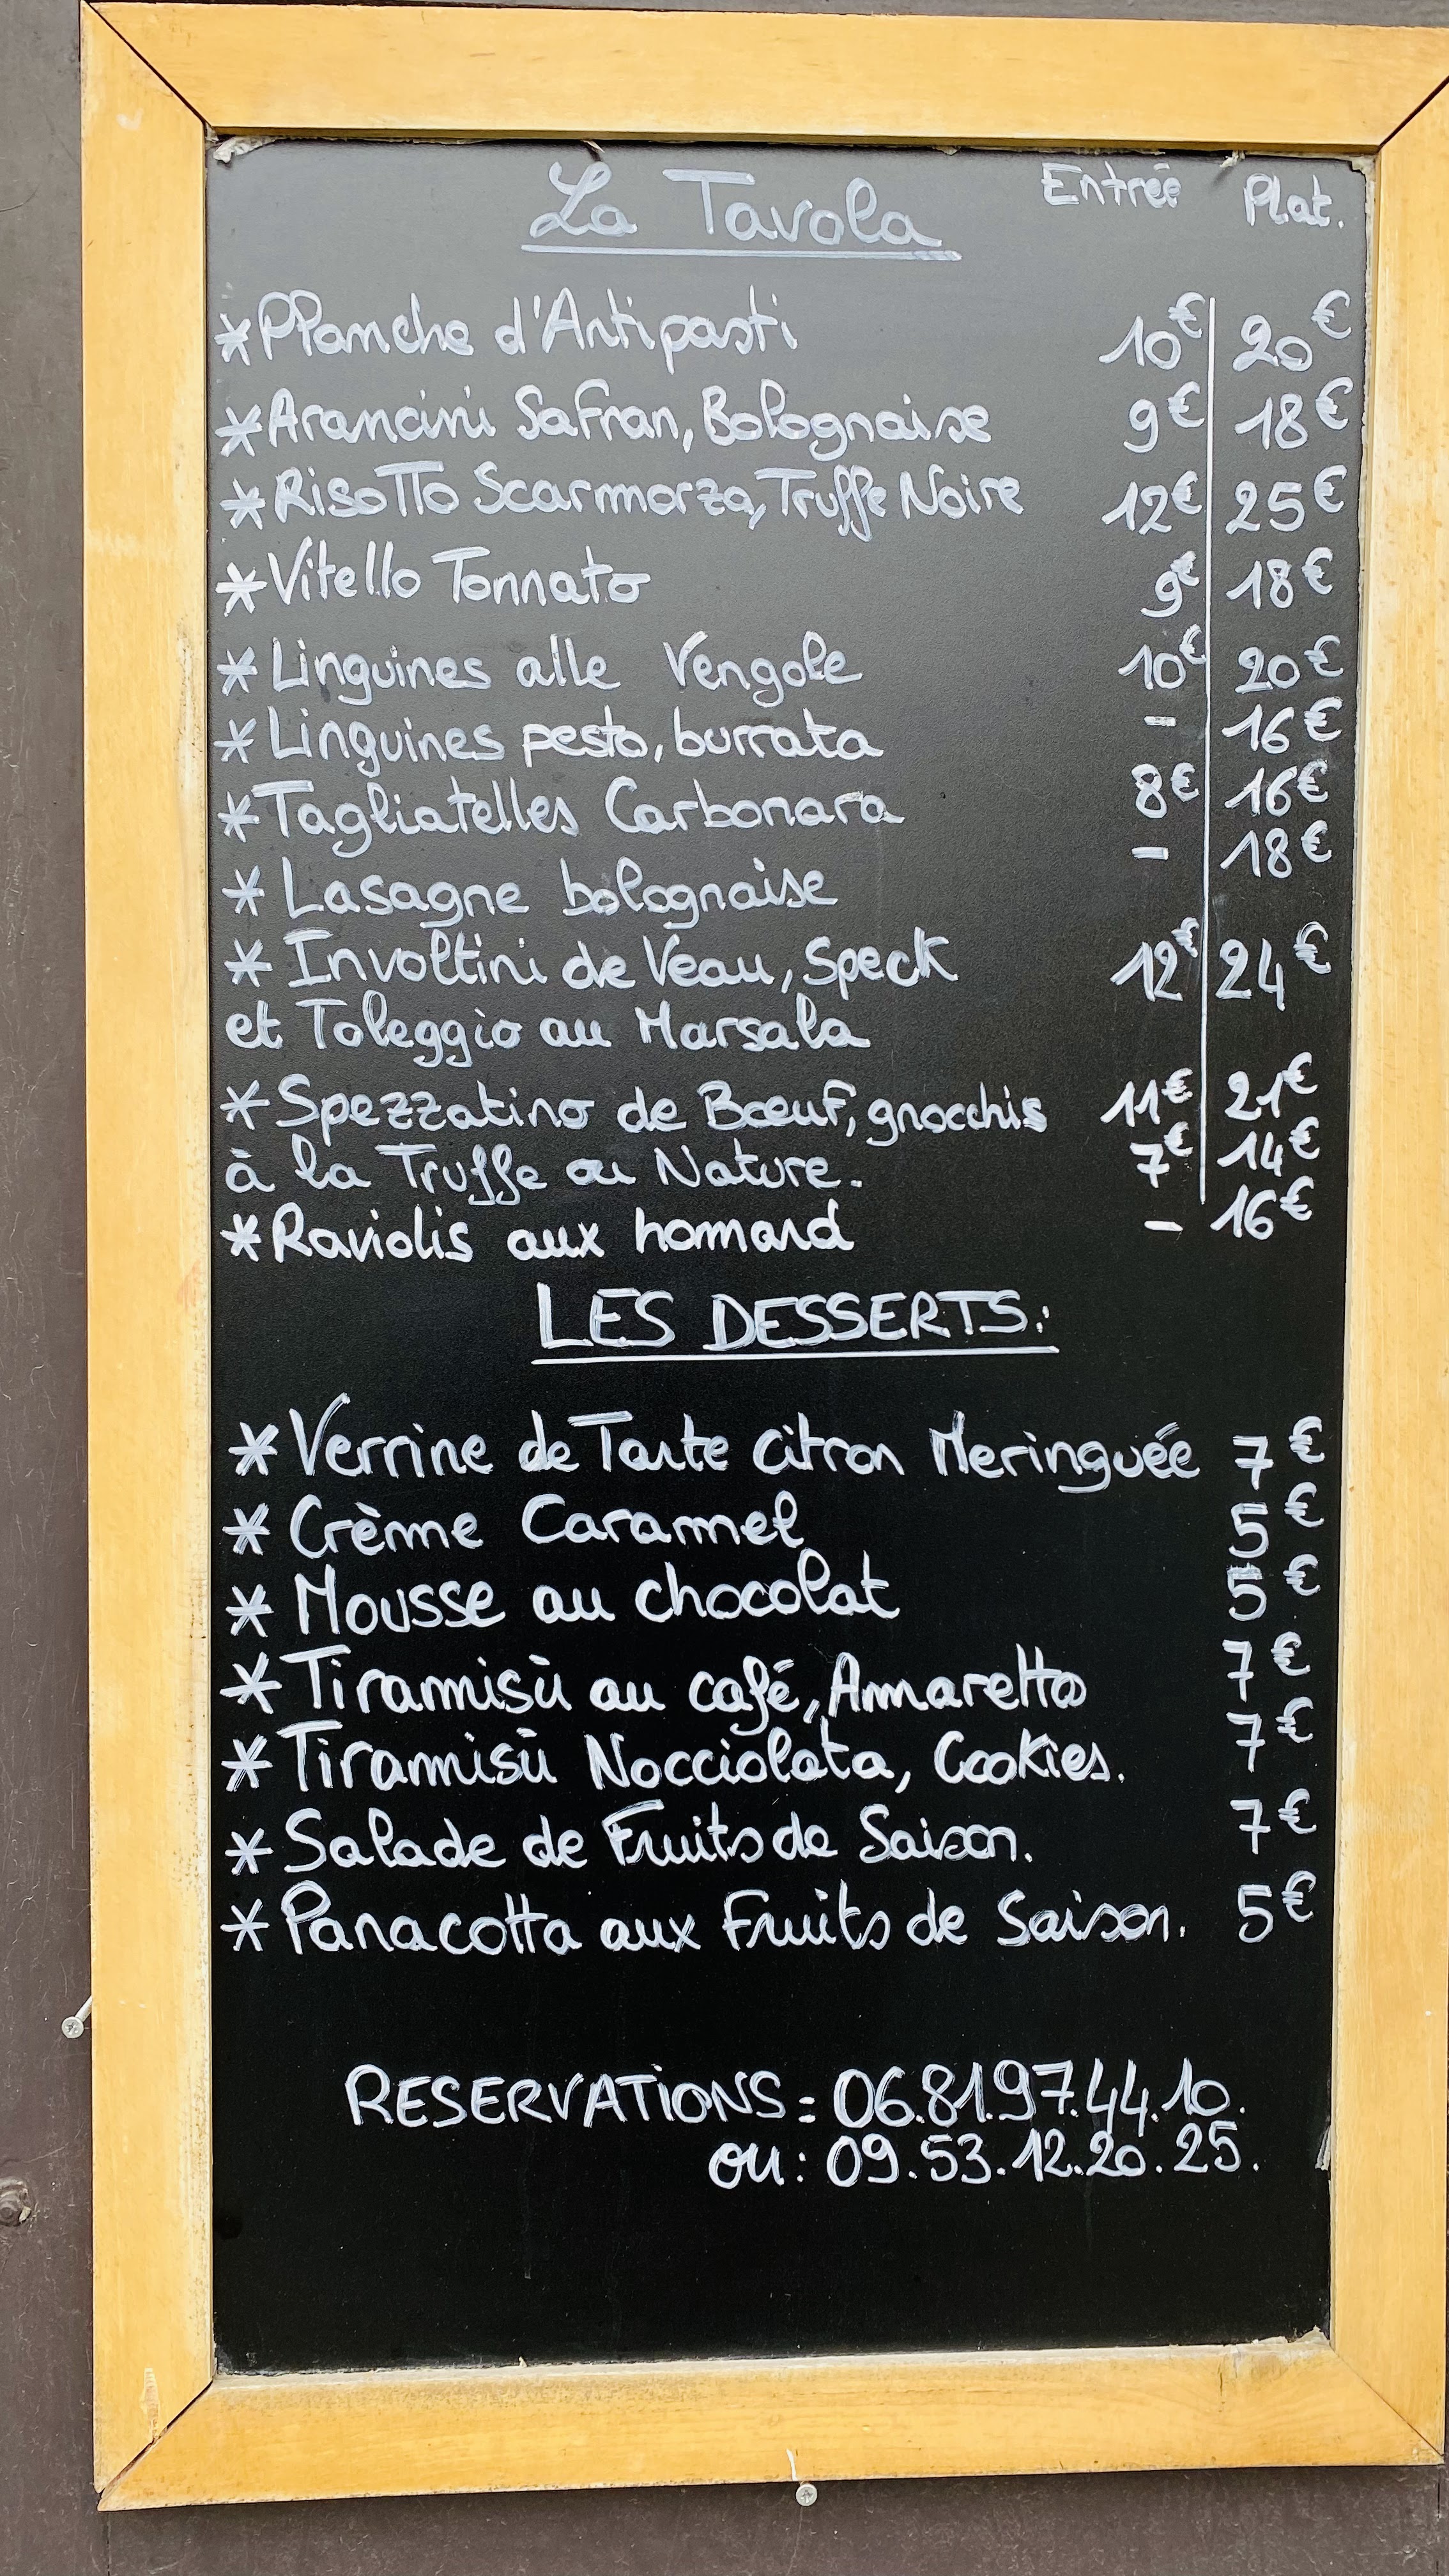 La Tavola Entrée Plat.
*Planche d'Antipasti 10€ 20€
*Arancini Safran, Bolognaise 9€ 18€
*Risotto Scarmorza, Truffe Noire 12€ 25€
*Vitello Tonnato 9€ 18€
*Linguines alle Vengole 10€ 20€
*Linguines pesto, burrata - 16€
*Tagliatelles Carbonara 8€ 16€
*Lasagne bolognaise - 18€
*Involtini de Veau, Speck 12€ 24€
et Toleggio au Marsala
*Spezzatino de Bœuf, gnocchis 11€ 21€
à la Truffe ou Nature. 7€ 14€
*Raviolis aux homard - 16€
LES DESSERTS:
*Verrine de Tarte citron Meringuée 7€
*Crème Caramel 5€
*Mousse au chocolat 5€
*Tiramisù au café, Amaretto 7€
*Tiramisù Nocciolata, Cookies. 7€
*Salade de Fruits de Saison. 7€
*Panacotta aux Fruits de Saison. 5€
RESERVATIONS: 06.81.97.44.10.
ou: 09.53.12.20.25.